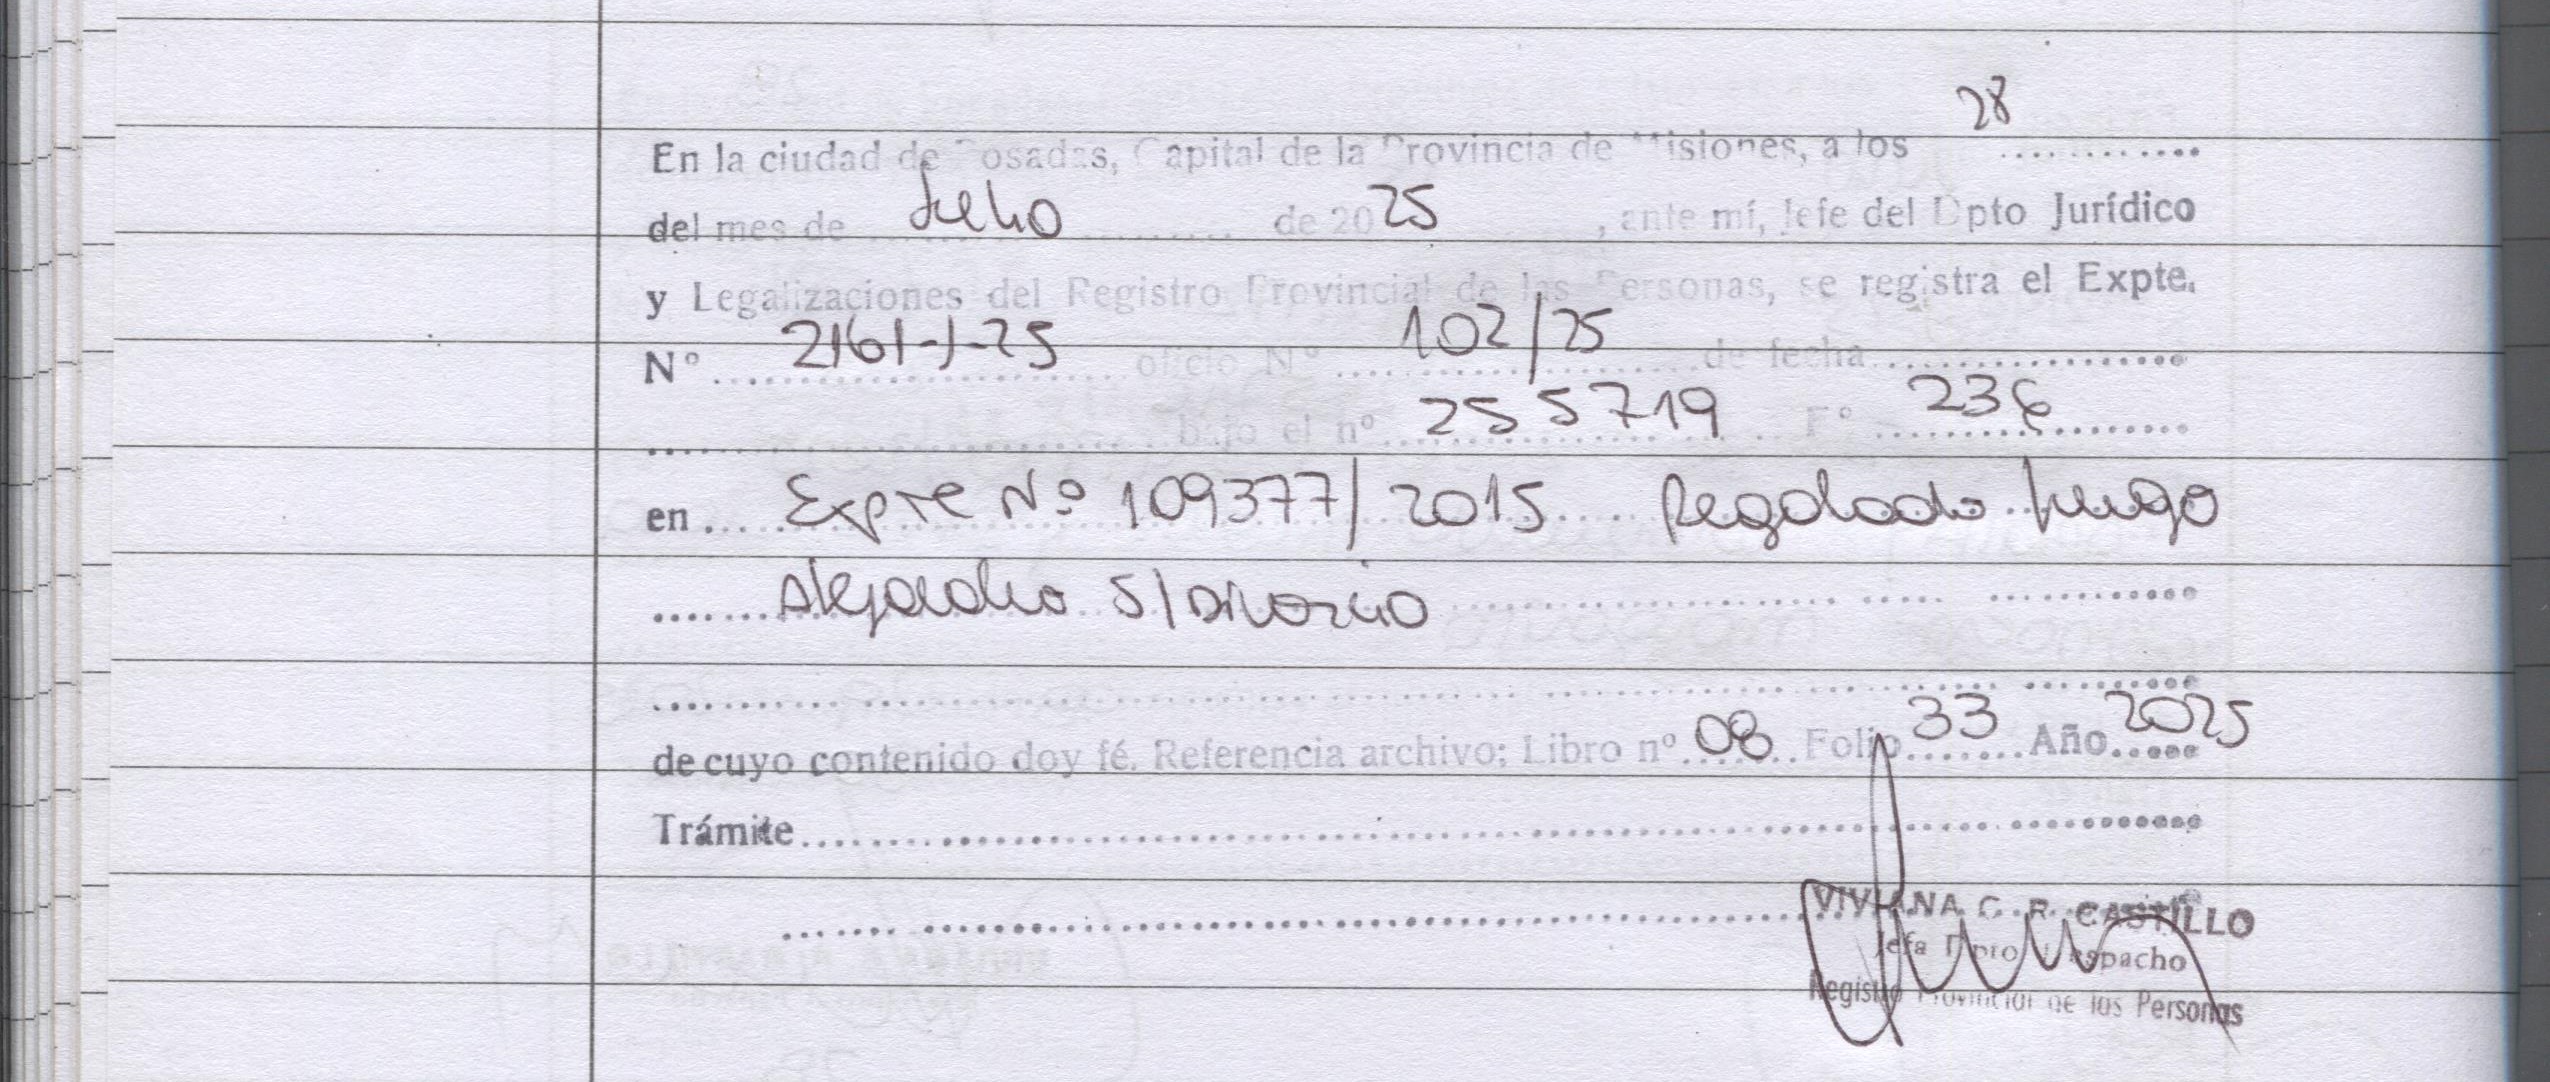 En la ciudad de Posadas, Capital de la Provincia de Misiones, a los 28 ............
del mes de Julio de 2025, ante mí, Jefe del Dpto Jurídico
y Legalizaciones del Registro Provincial de las Personas, se registra el Expte.
Nº 2161-J-25 oficio Nº 102/25 de fecha ..................
bajo el nº 255719 Fº 236
en Expte Nº 109377/2015 Regalado Hugo
Alejandro S/Divorcio
de cuyo contenido doy fé. Referencia archivo: Libro nº 08 Folio 33 Año 2025
Trámite
VIVIANA C. R. CASTILLO
Jefa Dpto Despacho
Registro Provincial de las Personas